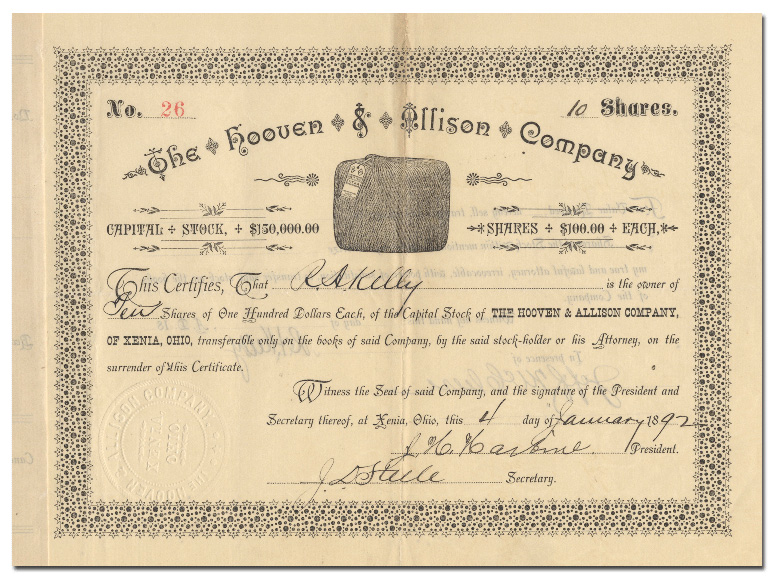 No. 26
10 Shares.
The Hooven & Allison Company
CAPITAL + STOCK, + $150,000.00
SHARES + $100.00 + EACH,
This Certifies, That R. A. Kelly is the owner of
Ten Shares of One Hundred Dollars Each, of the Capital Stock of THE HOOVEN & ALLISON COMPANY,
OF XENIA, OHIO, transferable only on the books of said Company, by the said stock-holder or his Attorney, on the
surrender of this Certificate.
Witness the Seal of said Company, and the signature of the President and
Secretary thereof, at Xenia, Ohio, this 4 day of January 1892
President.
J D Steele Secretary.
ALLISON COMPANY
XENIA
OHIO